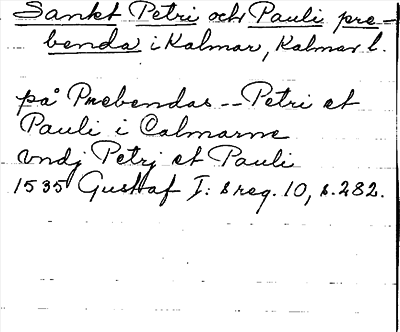 Sankt Petri och Pauli pre-
benda i Kalmar, Kalmar l.
på Prebendas -- Petri et
Pauli i Calmarne
vndj Petrj et Pauli
1535 Gustaf I: s reg. 10, s. 282.